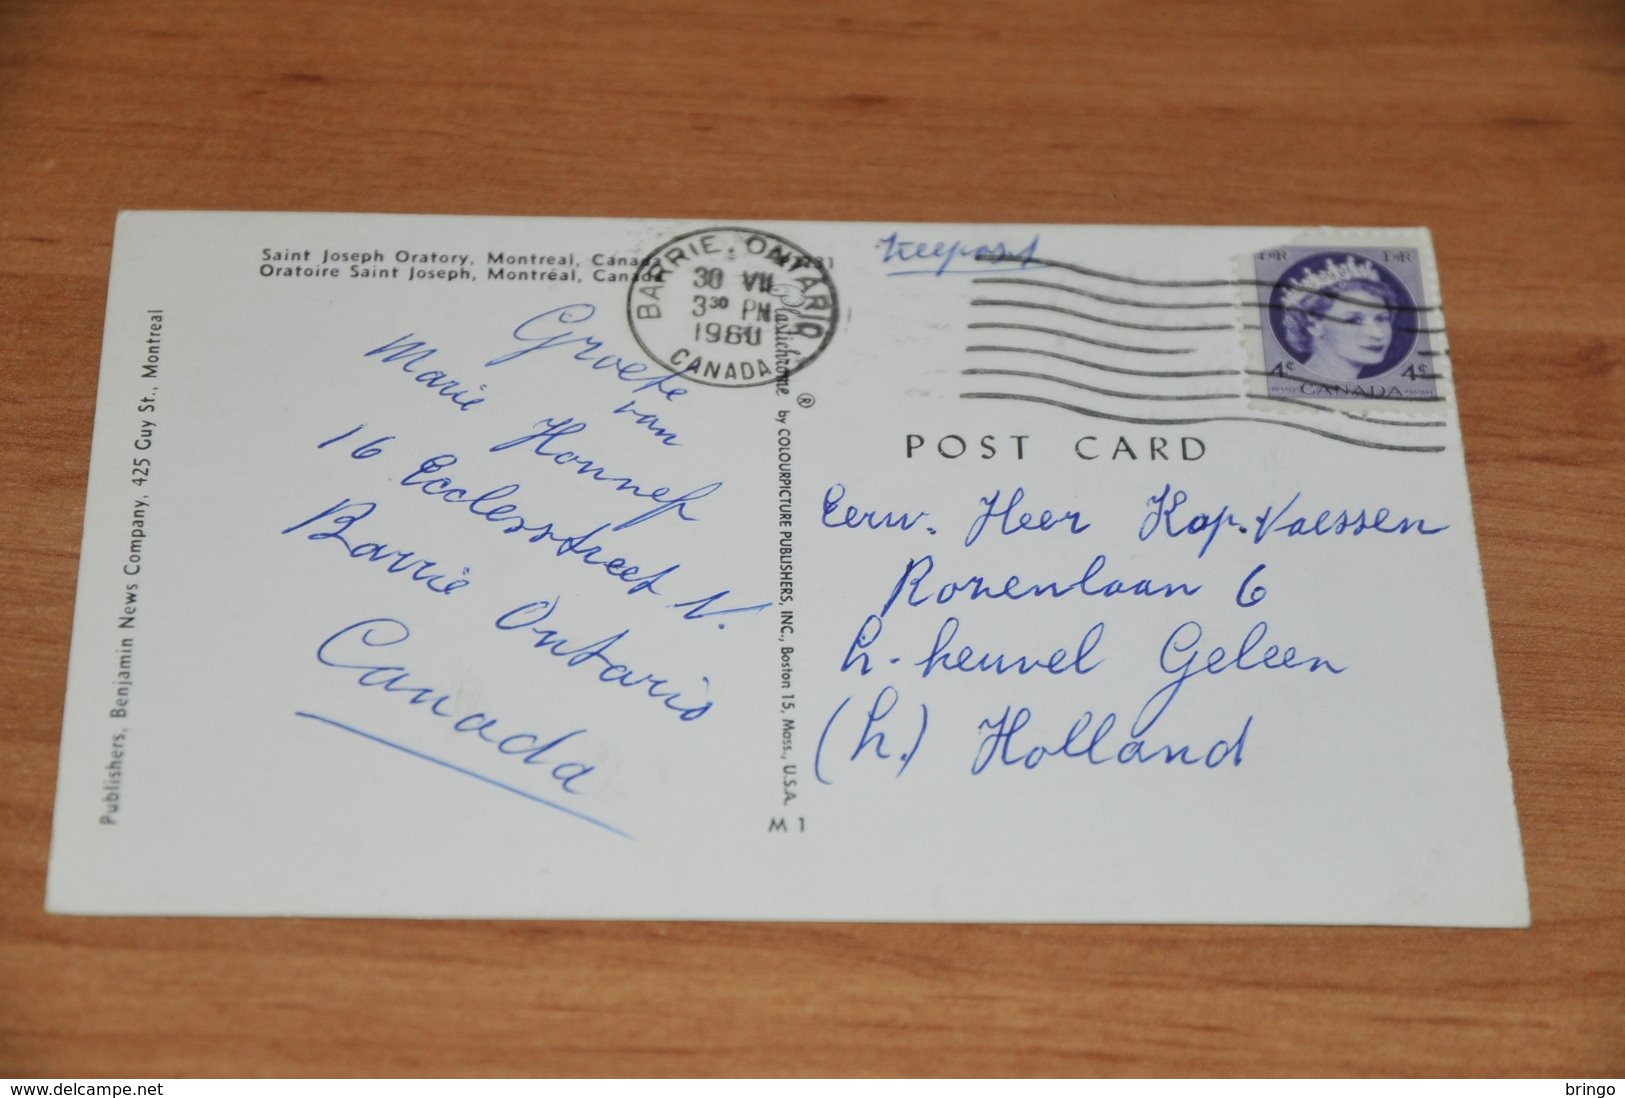 Saint Joseph Oratory, Montreal, Canada
Oratoire Saint Joseph, Montréal, Canada
BARRIE, ONTARIO
30 VII
3 30 PM
1960
CANADA
Groete
van
Marie Honnef
16 Ecclesstreet N.
Barrie Ontario
Canada
Publishers, Benjamin News Company, 425 Guy St., Montreal
Plastichrome ® by COLOURPICTURE PUBLISHERS, INC., Boston 15, Mass., U.S.A.
M 1
4¢ CANADA 4¢
POST CARD
Eerw. Heer Kap. Vaessen
Rozenlaan 6
L-heuvel Geleen
(L.) Holland
delcampe.net
bringo